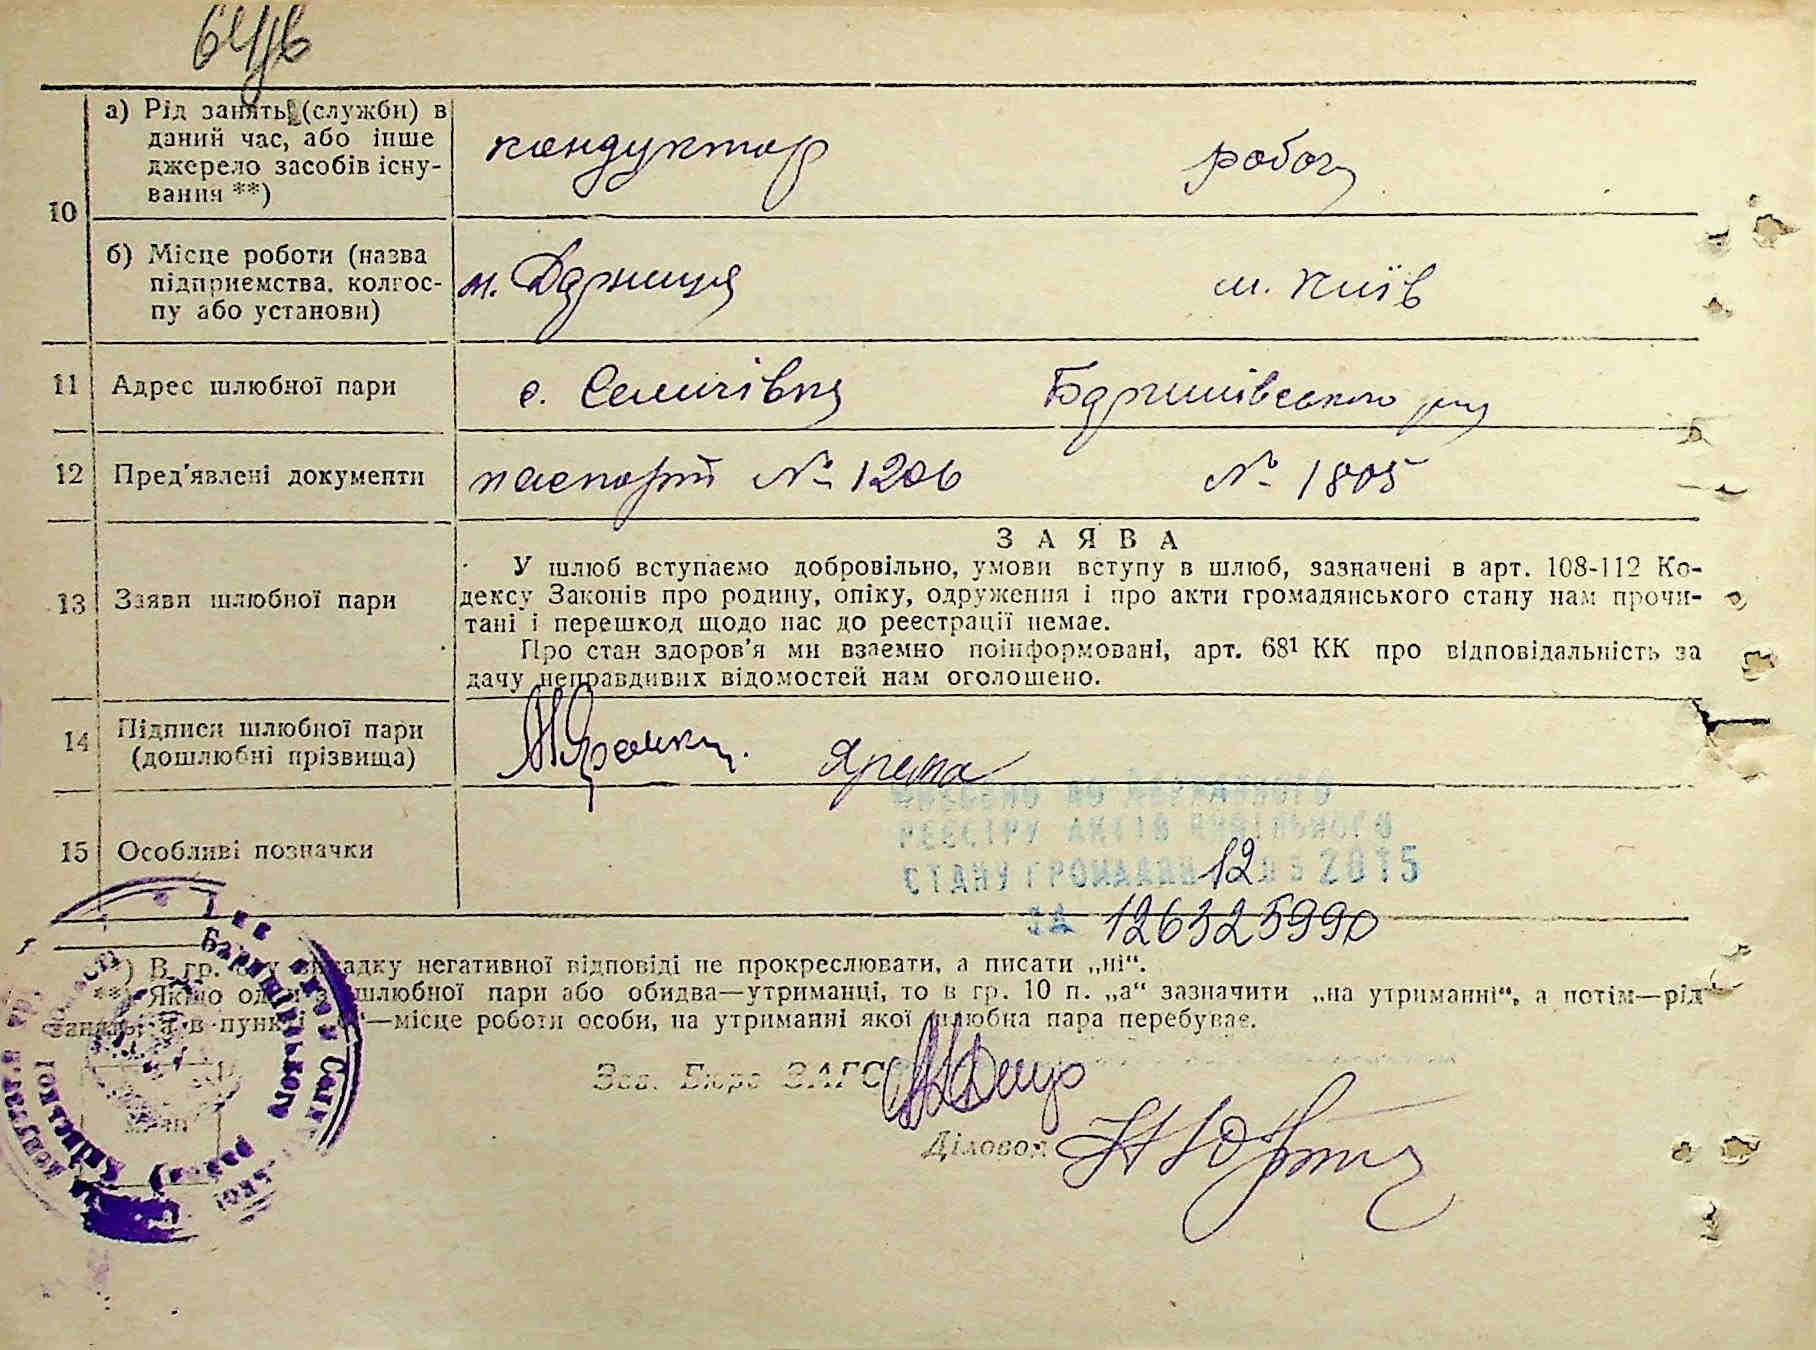 10
а) Рід занять (служби) в
даний час, або інше
джерело засобів існу-
вання **)
кондуктор
робоч
б) Місце роботи (назва
підприємства, колгос-
пу або установи)
м. Дарниця
м. Київ
11
Адрес шлюбної пари
с. Селичівка
Баришівського р-ну
12
Пред'явлені документи
паспорт № 1206
№ 1805
13
Заяви шлюбної пари
ЗАЯВА
У шлюб вступаємо добровільно, умови вступу в шлюб, зазначені в арт. 108-112 Ко-
дексу Законів про родину, опіку, одруження і про акти громадянського стану нам прочи-
тані і перешкод щодо нас до реєстрації немає.
Про стан здоров'я ми взаємно поінформовані, арт. 68¹ КК про відповідальність за
дачу неправдивих відомостей нам оголошено.
14
Підписи шлюбної пари
(дошлюбні прізвища)
Ярема
15
Особливі позначки
ВНЕСЕНО ДО ДЕРЖАВНОГО
РЕЄСТРУ АКТІВ ЦИВІЛЬНОГО
СТАНУ ГРОМАДЯН 12 05 2015
ЗА 126325990
*) В гр. у випадку негативної відповіді не прокреслювати, а писати „ні“.
**) Якщо один з шлюбної пари або обидва—утриманці, то в гр. 10 п. „а“ зазначити „на утриманні“, а потім—рід
занять, а в пункті „б“—місце роботи особи, на утриманні якої шлюбна пара перебуває.
Зав. Бюро ЗАГС
Діловод
Баришівського
району Київської